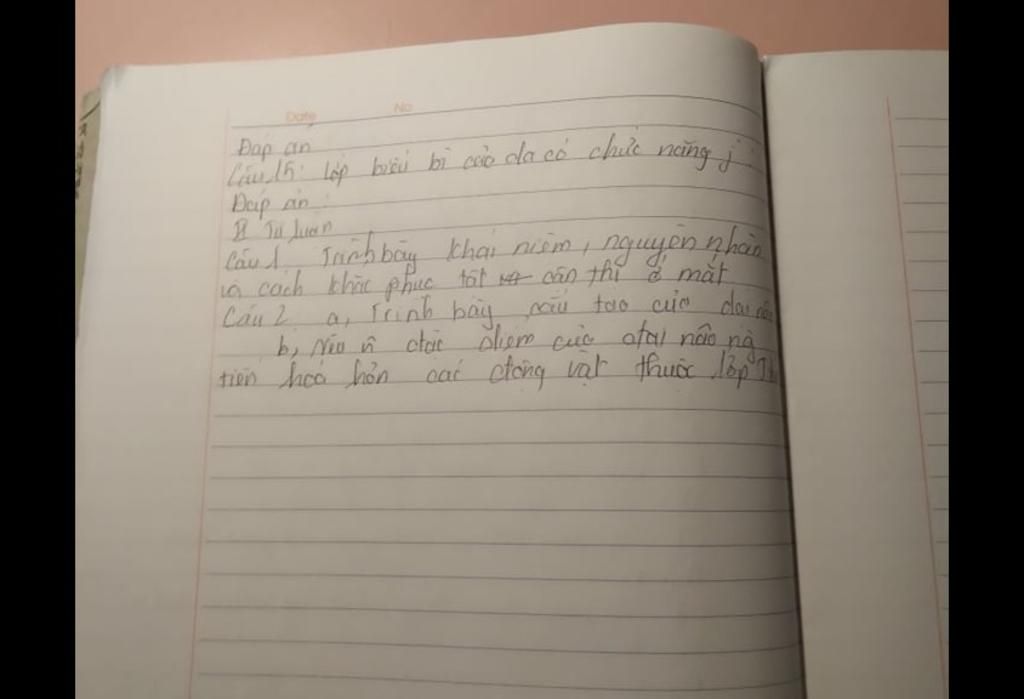 Date No
Đáp án
Câu 15: lớp biểu bì của da có chức năng j
Đáp án:
II Tự luận
Câu 1 Trình bày khái niệm, nguyên nhân
và cách khắc phục tật cận thị ở mắt
Câu 2 a, Trình bày cấu tạo của đại não
b, Nêu đặc điểm của đại não
tiến hoá hơn các động vật thuộc lớp